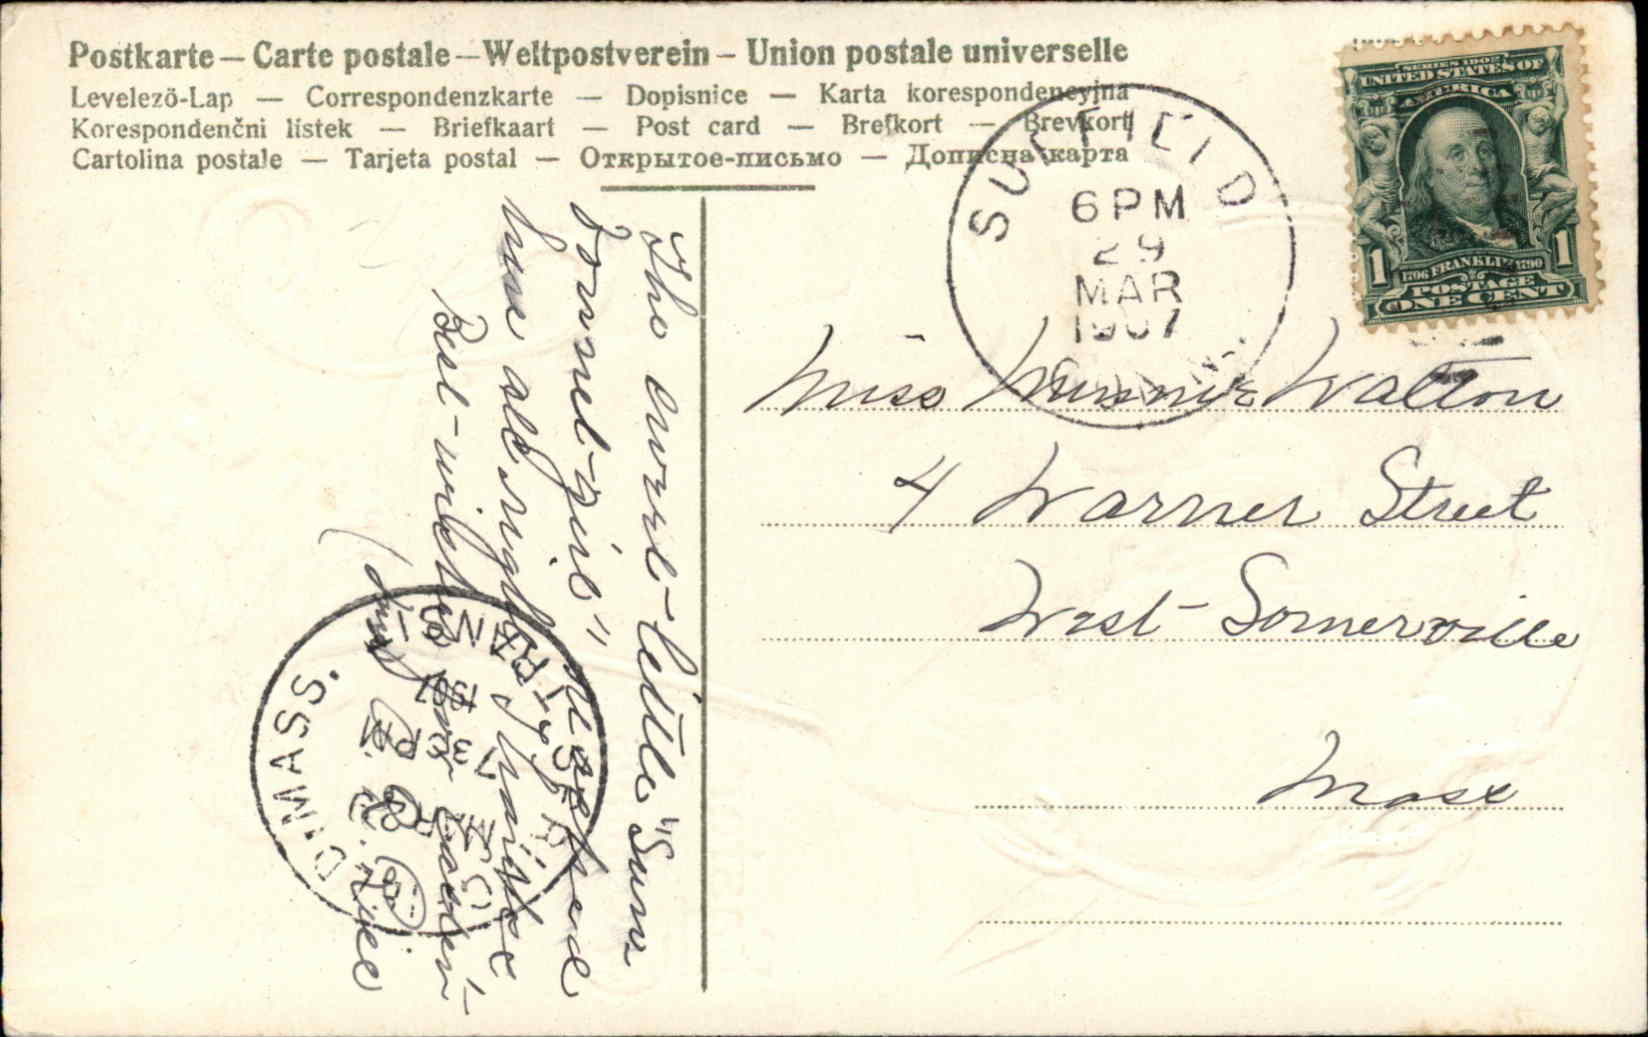 Postkarte — Carte postale — Weltpostverein — Union postale universelle
Levelezö-Lap — Correspondenzkarte — Dopisnice — Karta korespondencyjna
Korespondenčni lístek — Briefkaart — Post card — Brefkort — Brevkort
Cartolina postale — Tarjeta postal — Открытое-письмо — Дописна карта
SUFFIELD
6 PM
29
MAR
1907
CONN.
SERIES 1902
UNITED STATES OF
AMERICA
1 1
1706 FRANKLIN 1790
POSTAGE
ONE CENT
Miss Minnie Walton
4 Warner Street
West Somerville
Mass
The sweet little "Sun
Bonnet girl"
have all right
Best wishes
for Easter
MASS.
1907